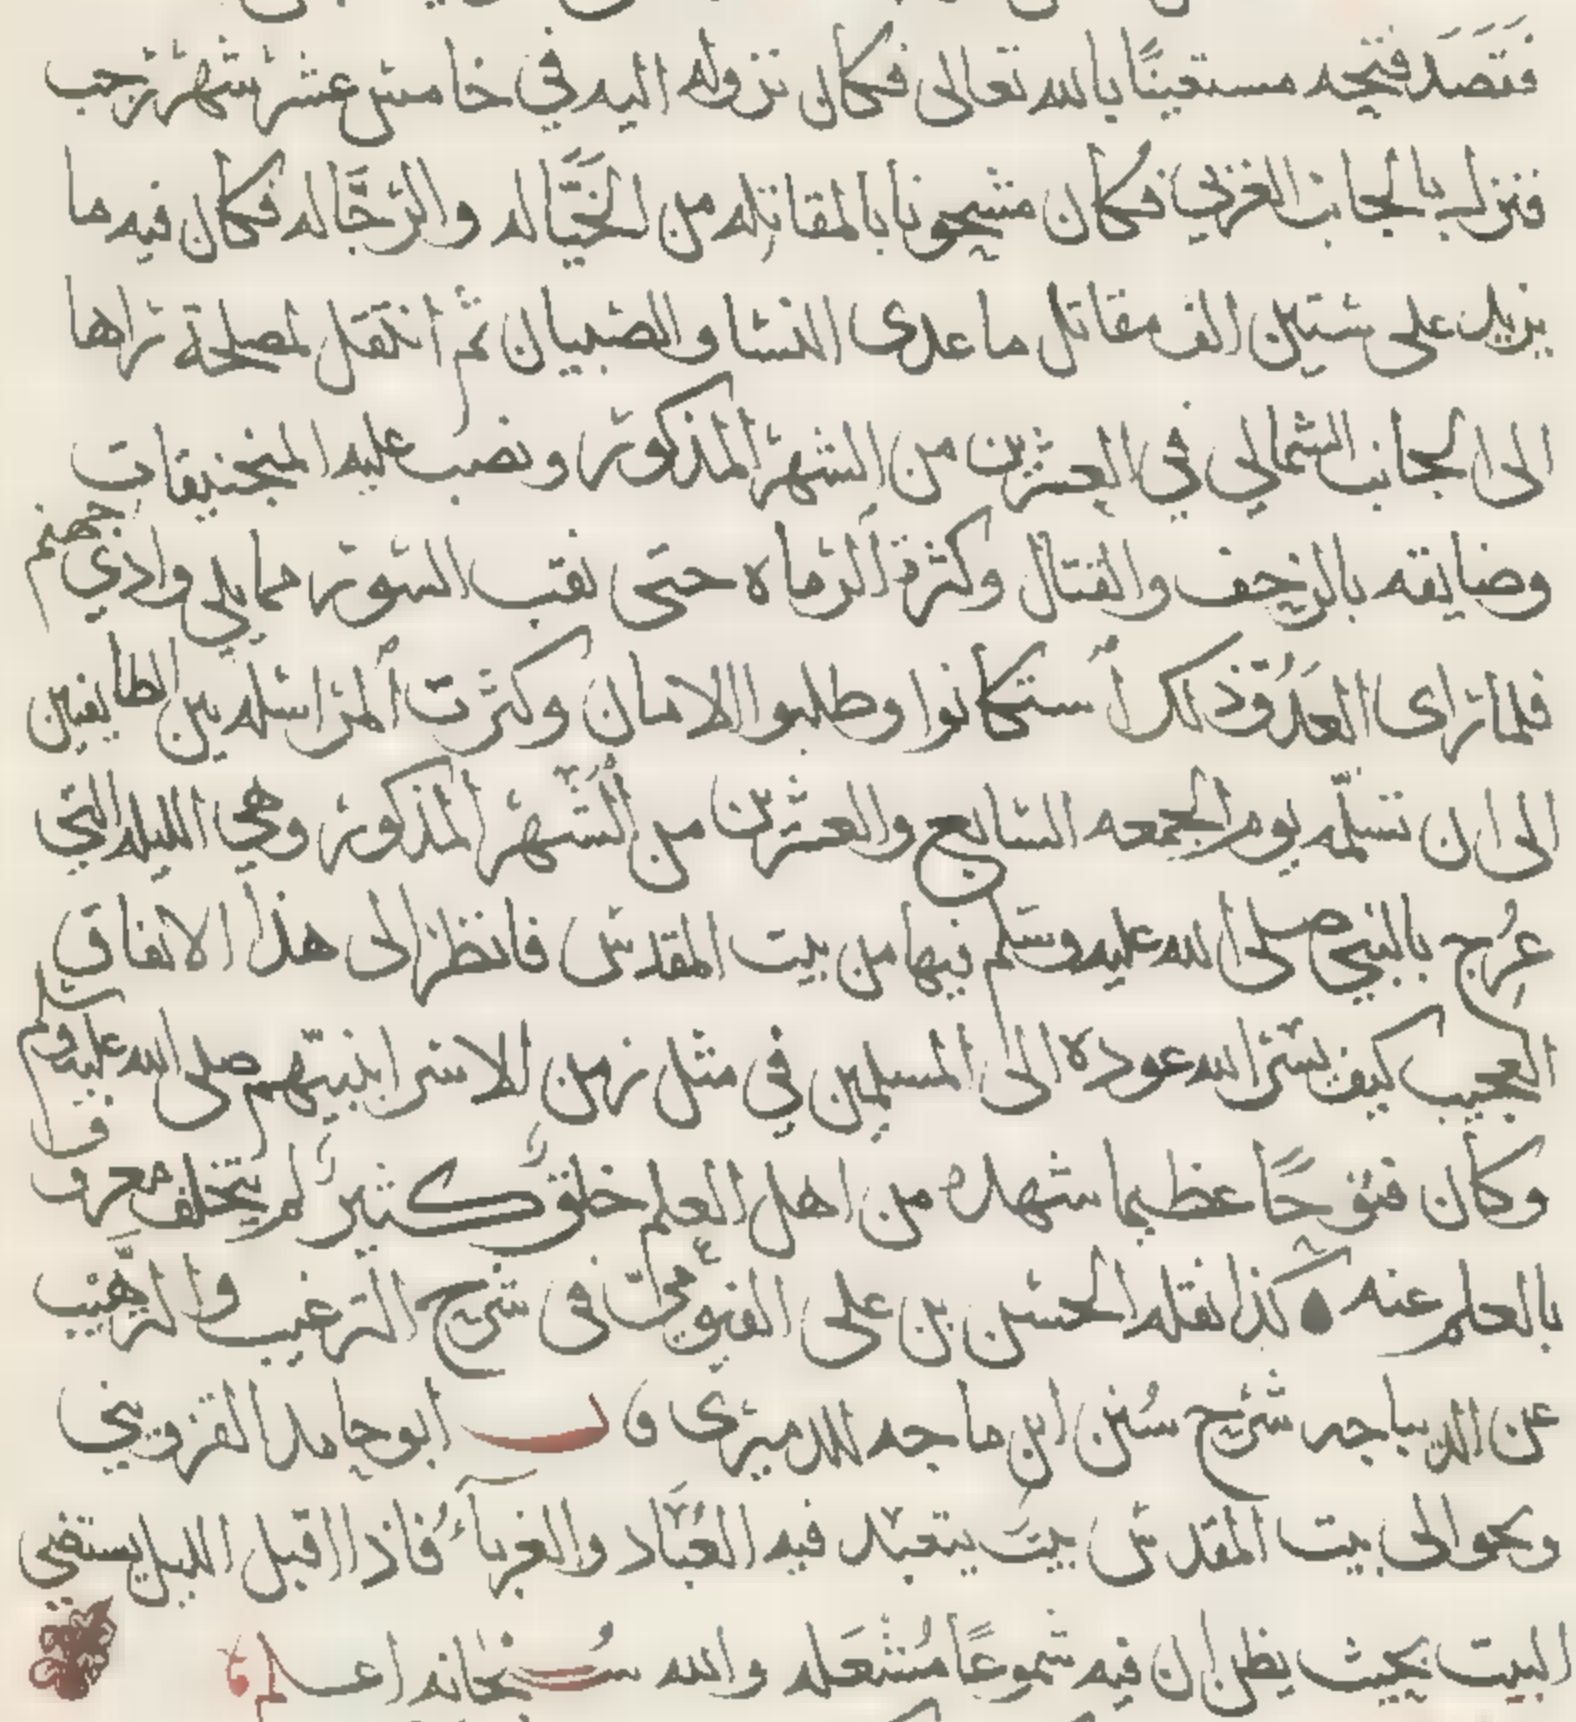 فقصد فتحه مستعينًا بالله تعالى فكان نزوله اليه في خامس عشر شهر رجب
فنزل بالجانب الغربي فكان مشحونا بالمقاتله من الخيَّاله والرجَّاله فكان فيه ما
يزيد على ستين الف مقاتل ما عدى النسا والصبيان ثم انتقل لمصلحة راها
الى الجانب الشمالي في العشرين من الشهر المذكور ونصب عليه المنجنيقات
وضايقه بالزحف والقتال وكثرة الرماه حتى نقب السور مما يلي وادي جهنم
فلما راى العدُوّ ذلك استكانوا وطلبوا الامان وكثرت المراسله بين الطايفين
الى ان تسلّمه يوم الجمعه السابع والعشرين من الشهر المذكور وهي الليله التي
عُرج بالنبي صلى الله عليه وسلم فيها من بيت المقدس فانظر الى هذا الاتفاق
العجيب كيف يسّر الله عوده الى المسلمين في مثل زمن الاسرا بنبيّهم صلى الله عليه وسلم
وكان فتوحًا عظيما شهده من اهل العلم خلق كثير لم يتخلف معروف
بالعلم عنه كذا نقله الحسن بن على الفيومى في شرح الترغيب والترهيب
عن الديباجه شرح سُنن ابن ماجه للدميرى وقال ابو حامد القزويني
وبحوالى بيت المقدس بيت يتعبد فيه العُبَّاد والغربآء فاذا اقبل الليل يستضي
البيت بحيث يظن ان فيه شموعًا مُشْعَله والله سُبْحانه اعلم